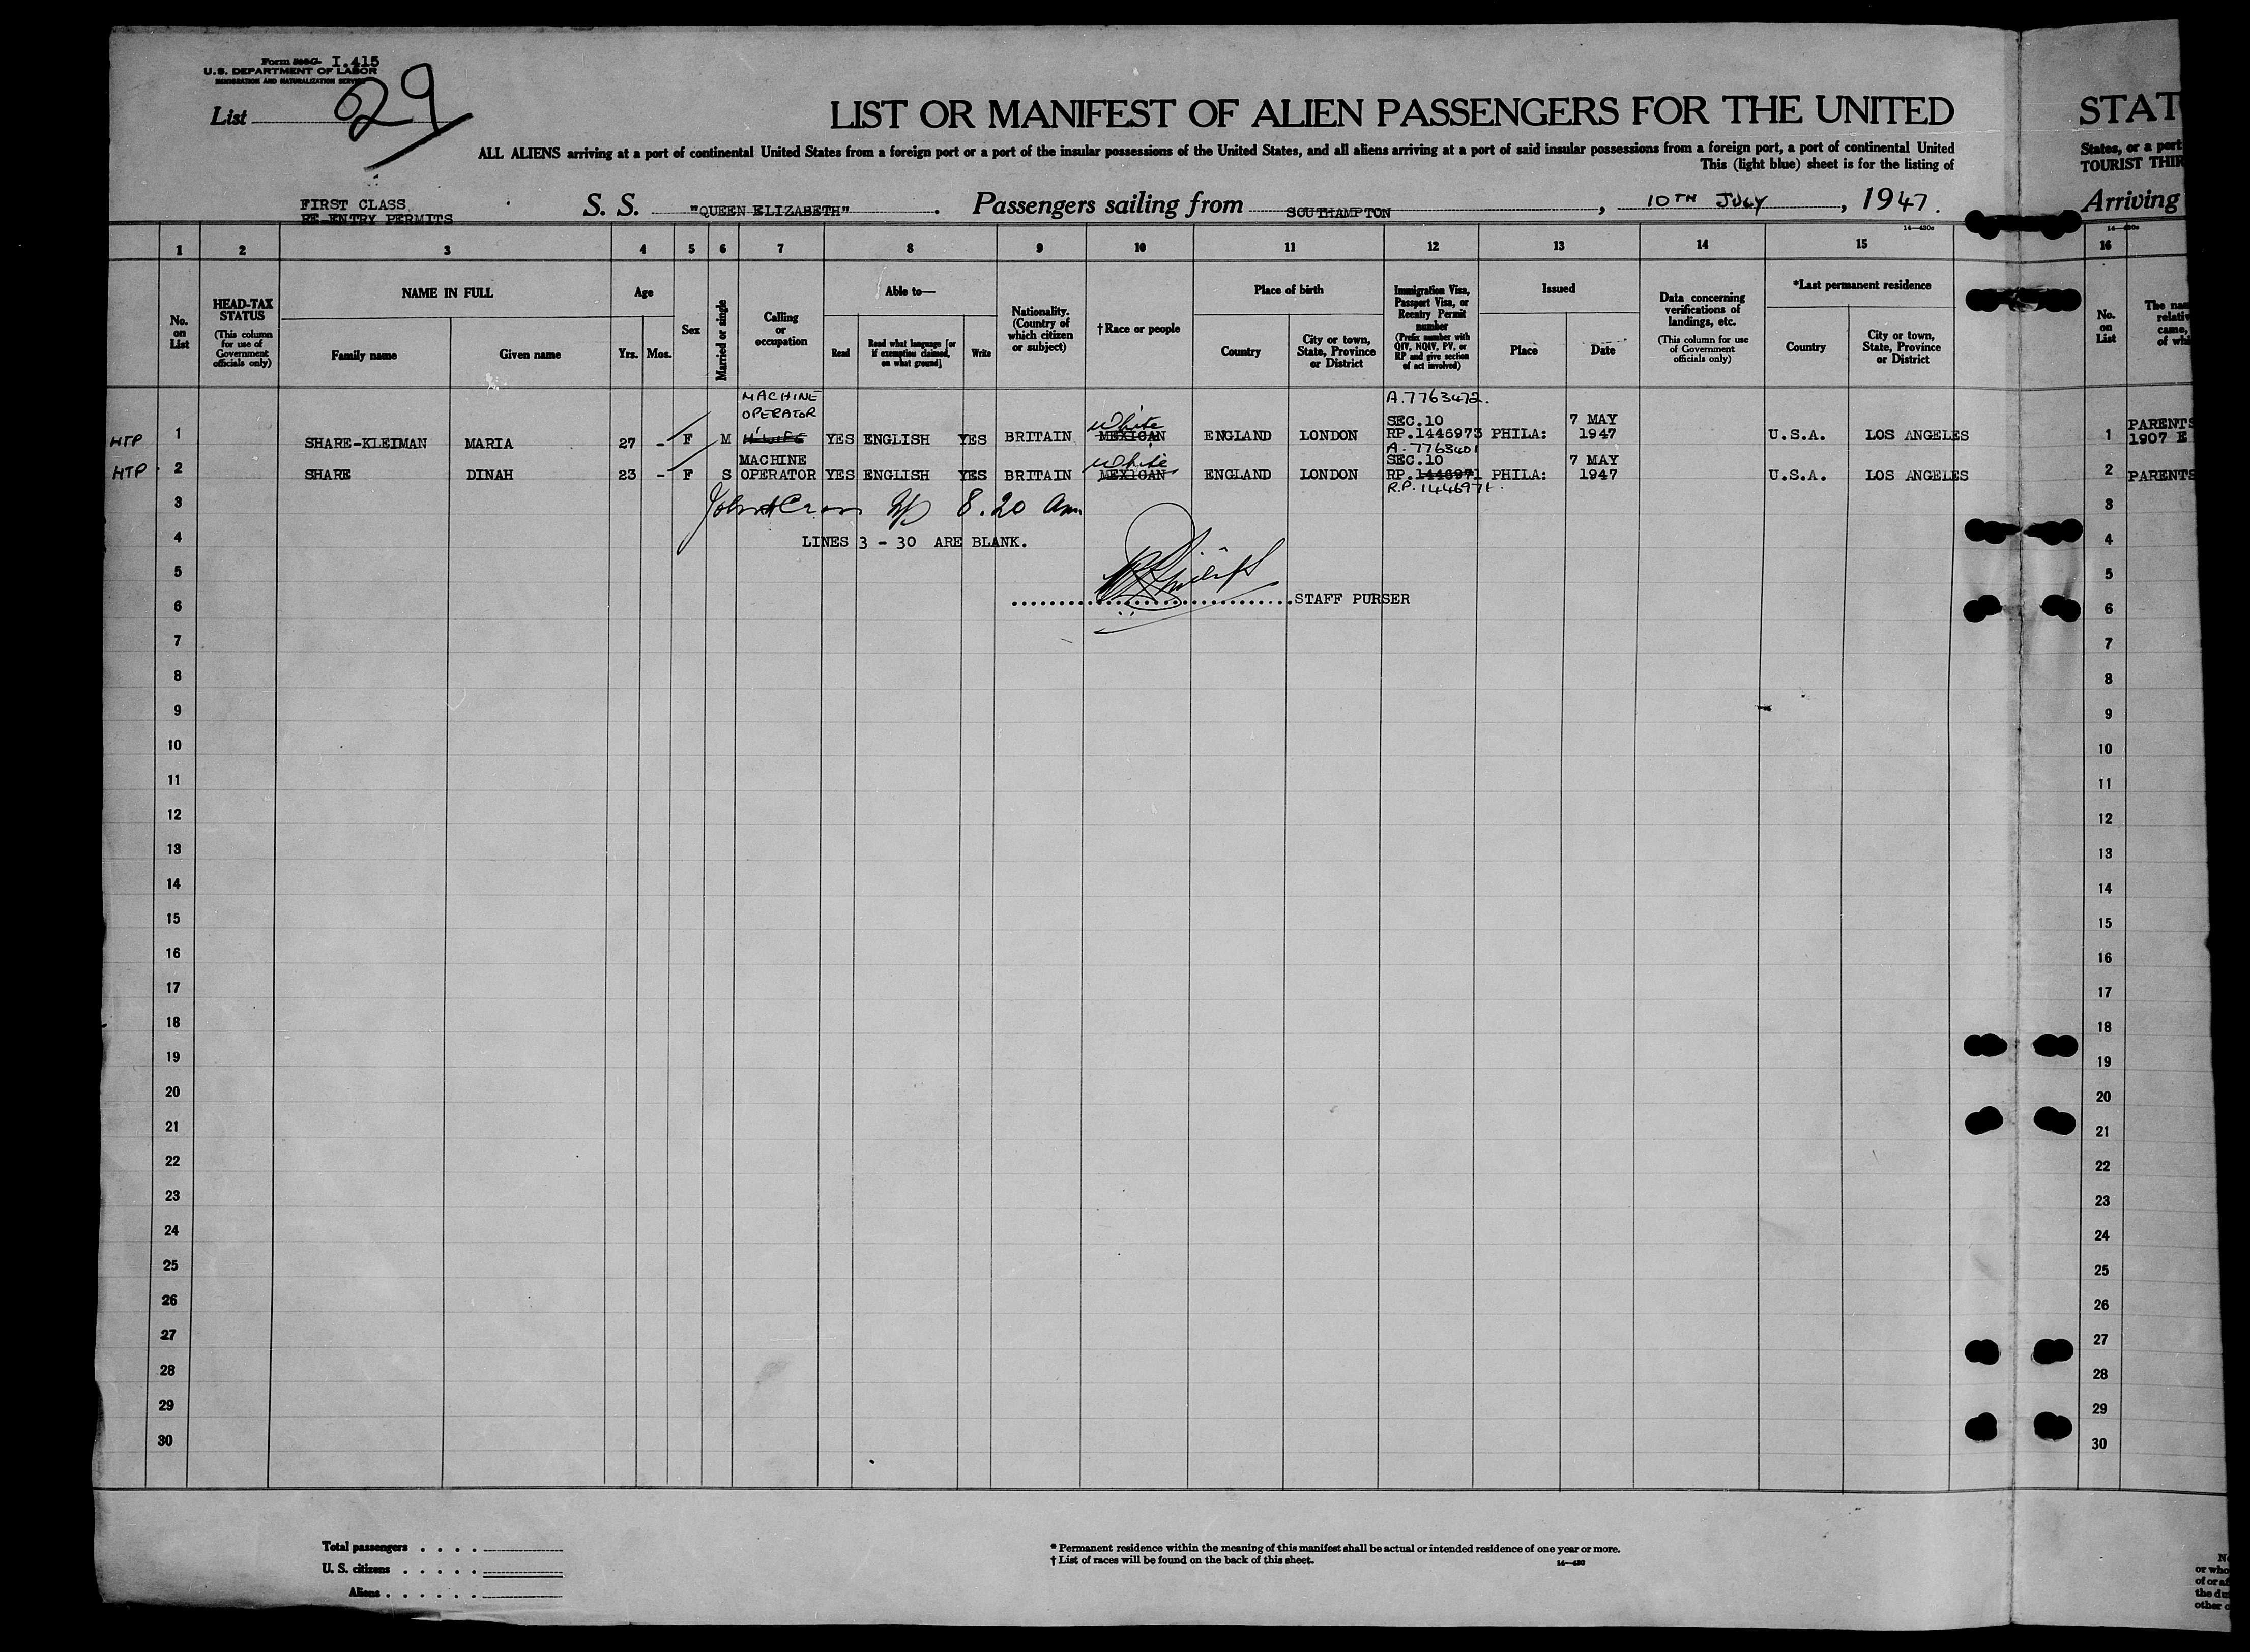 Form I.415
U.S. DEPARTMENT OF LABOR
IMMIGRATION AND NATURALIZATION SERVICE
List 29
LIST OR MANIFEST OF ALIEN PASSENGERS FOR THE UNITED
STAT
ALL ALIENS arriving at a port of continental United States from a foreign port or a port of the insular possessions of the United States, and all aliens arriving at a port of said insular possessions from a foreign port, a port of continental United
States, or a port
This (light blue) sheet is for the listing of
TOURIST THIR
FIRST CLASS
RE-ENTRY PERMITS
S. S. "QUEEN ELIZABETH". Passengers sailing from SOUTHAMPTON, 10TH JULY, 1947.
Arriving
14—430c
1 2 3 4 5 6 7 8 9 10 11 12 13 14 15 16
No. on List
HEAD-TAX STATUS (This column for use of Government officials only)
NAME IN FULL
Family name
Given name
Age
Yrs. Mos.
Sex
Married or single
Calling or occupation
Able to—
Read
Read what language [or if exemption claimed, on what ground]
Write
Nationality. (Country of which citizen or subject)
† Race or people
Place of birth
Country
City or town, State, Province or District
Immigration Visa, Passport Visa, or Reentry Permit number (Prefix number with QIV, NQIV, PV, or RP and give section of act involved)
Issued
Place
Date
Data concerning verifications of landings, etc. (This column for use of Government officials only)
*Last permanent residence
Country
City or town, State, Province or District
No. on List
The nam
relativ
came,
of whi
MACHINE OPERATOR
A.7763472.
White
SEC.10 7 MAY
HTP 1 SHARE-KLEIMAN MARIA 27 - F M H'WIFE YES ENGLISH YES BRITAIN MEXICAN ENGLAND LONDON RP.1446973 PHILA: 1947 U.S.A. LOS ANGELES
1 PARENTS
1907 E
A.7763401
MACHINE White SEC.10 7 MAY
HTP 2 SHARE DINAH 23 - F S OPERATOR YES ENGLISH YES BRITAIN MEXICAN ENGLAND LONDON RP.1446971 PHILA: 1947 U.S.A. LOS ANGELES
2 PARENTS
R.P. 1446971.
3 8.20 am. 3
4 LINES 3 - 30 ARE BLANK. 4
5 5
6 STAFF PURSER 6
7 7
8 8
9 9
10 10
11 11
12 12
13 13
14 14
15 15
16 16
17 17
18 18
19 19
20 20
21 21
22 22
23 23
24 24
25 25
26 26
27 27
28 28
29 29
30 30
Total passengers
U. S. citizens
Aliens
* Permanent residence within the meaning of this manifest shall be actual or intended residence of one year or more.
† List of races will be found on the back of this sheet.
14—430
or who
of or af
the du
other o